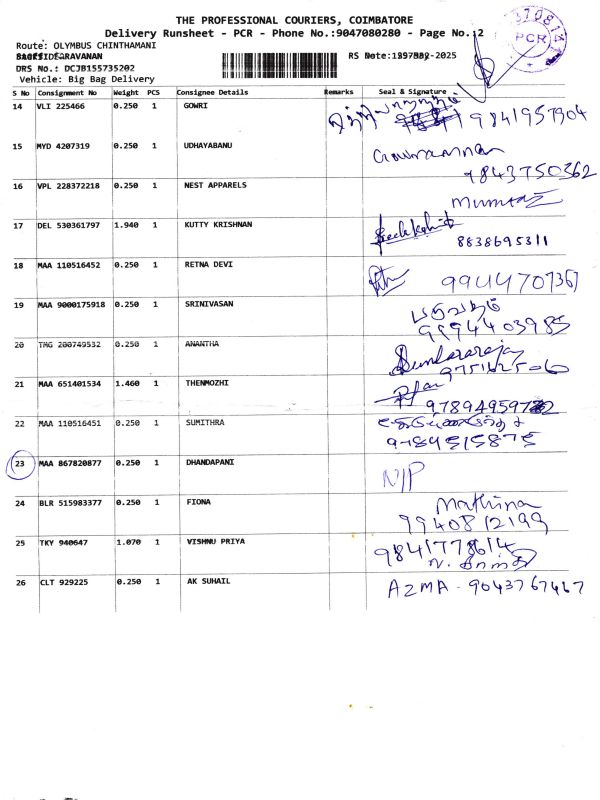 THE PROFESSIONAL COURIERS, COIMBATORE
Delivery Runsheet - PCR - Phone No.:9047080280 - Page No.:2
Route: OLYMBUS CHINTHAMANI
DRS No.: DCJB155735202
Vehicle: Big Bag Delivery
PCR
S No Consignment No Weight PCS Consignee Details Remarks Seal & Signature
14 VLI 225466 0.250 1 GOWRI 9841957904
15 MYD 4207319 0.250 1 UDHAYABANU
9843750362
16 VPL 228372218 0.250 1 NEST APPARELS Mumtaz
17 DEL 530361797 1.940 1 KUTTY KRISHNAN
8838695311
18 MAA 110516452 0.250 1 RETNA DEVI 9944470767
19 MAA 9000175918 0.250 1 SRINIVASAN
9994403985
20 TMG 200749532 0.250 1 ANANTHA Sundararaja
21 MAA 651401534 1.460 1 THENMOZHI
22 MAA 110516451 0.250 1 SUMITHRA
9784515875
23 MAA 867820877 0.250 1 DHANDAPANI N/P
24 BLR 515983377 0.250 1 FIONA Mathina
9940812199
25 TKY 940647 1.070 1 VISHNU PRIYA 9841778614
26 CLT 929225 0.250 1 AK SUHAIL AZMA - 9043767467